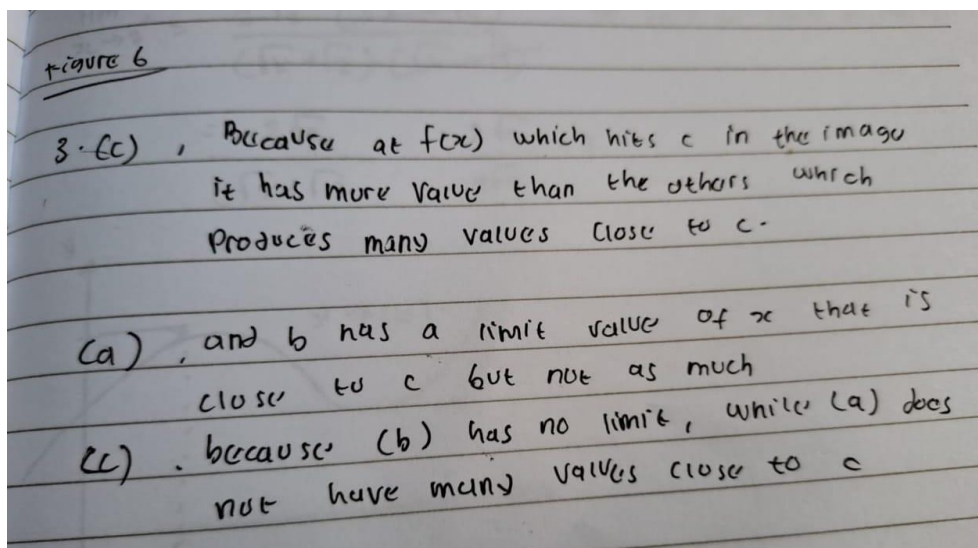 Figure 6
3. (c) , Because at f(x) which hits c in the image
it has more value than the others which
produces many values close to c.
(a) . and b has a limit value of x that is
close to c but not as much
(c) . because (b) has no limit, while (a) does
not have many values close to c